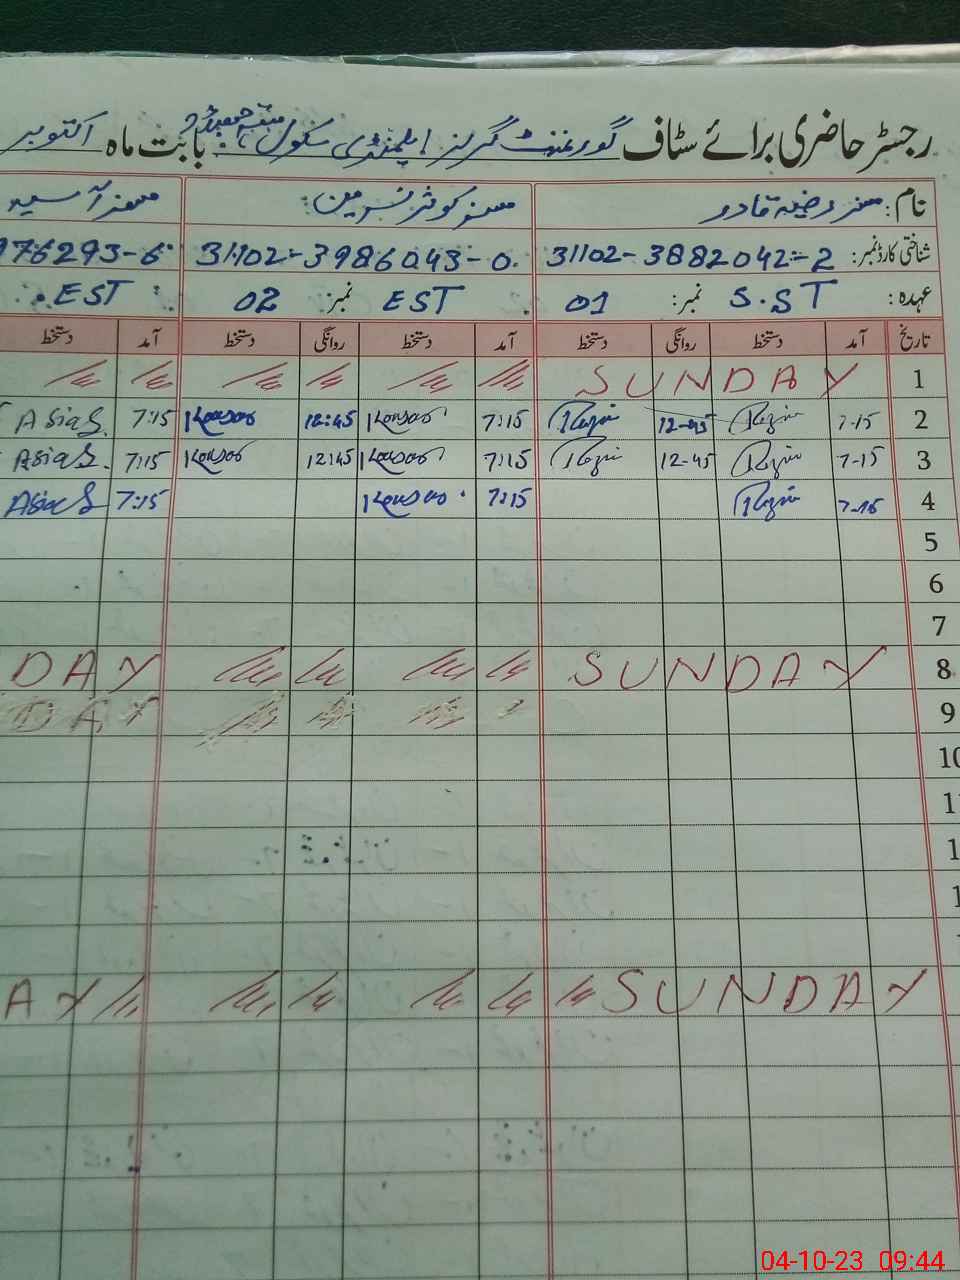 رجسٹر حاضری برائے سٹاف گورنمنٹ گرلز ایلیمنٹری سکول بابت ماہ اکتوبر
نام: مسز رضیہ قادر مسز کوثر نسرین مسز آسیہ
شناختی کارڈ نمبر: 31102-3882042-2 31102-3986043-0 976293-6
عہدہ: S.ST نمبر: 01 EST نمبر: 02 EST
تاریخ آمد دستخط روانگی دستخط آمد دستخط روانگی دستخط آمد دستخط
1 SUNDAY
2 7-15 Razia 12-45 Razia 7:15 Kousar 12:45 Kousar 7:15 Asia S.
3 7-15 Razia 12-45 Razia 7:15 Kousar 12:45 Kousar 7:15 Asia S.
4 7-15 Razia 7:15 Kousar 7:15 Asia S
5
6
7
8 SUNDAY DAY
9 DAY
10
11
1
1
SUNDAY AY
04-10-23 09:44